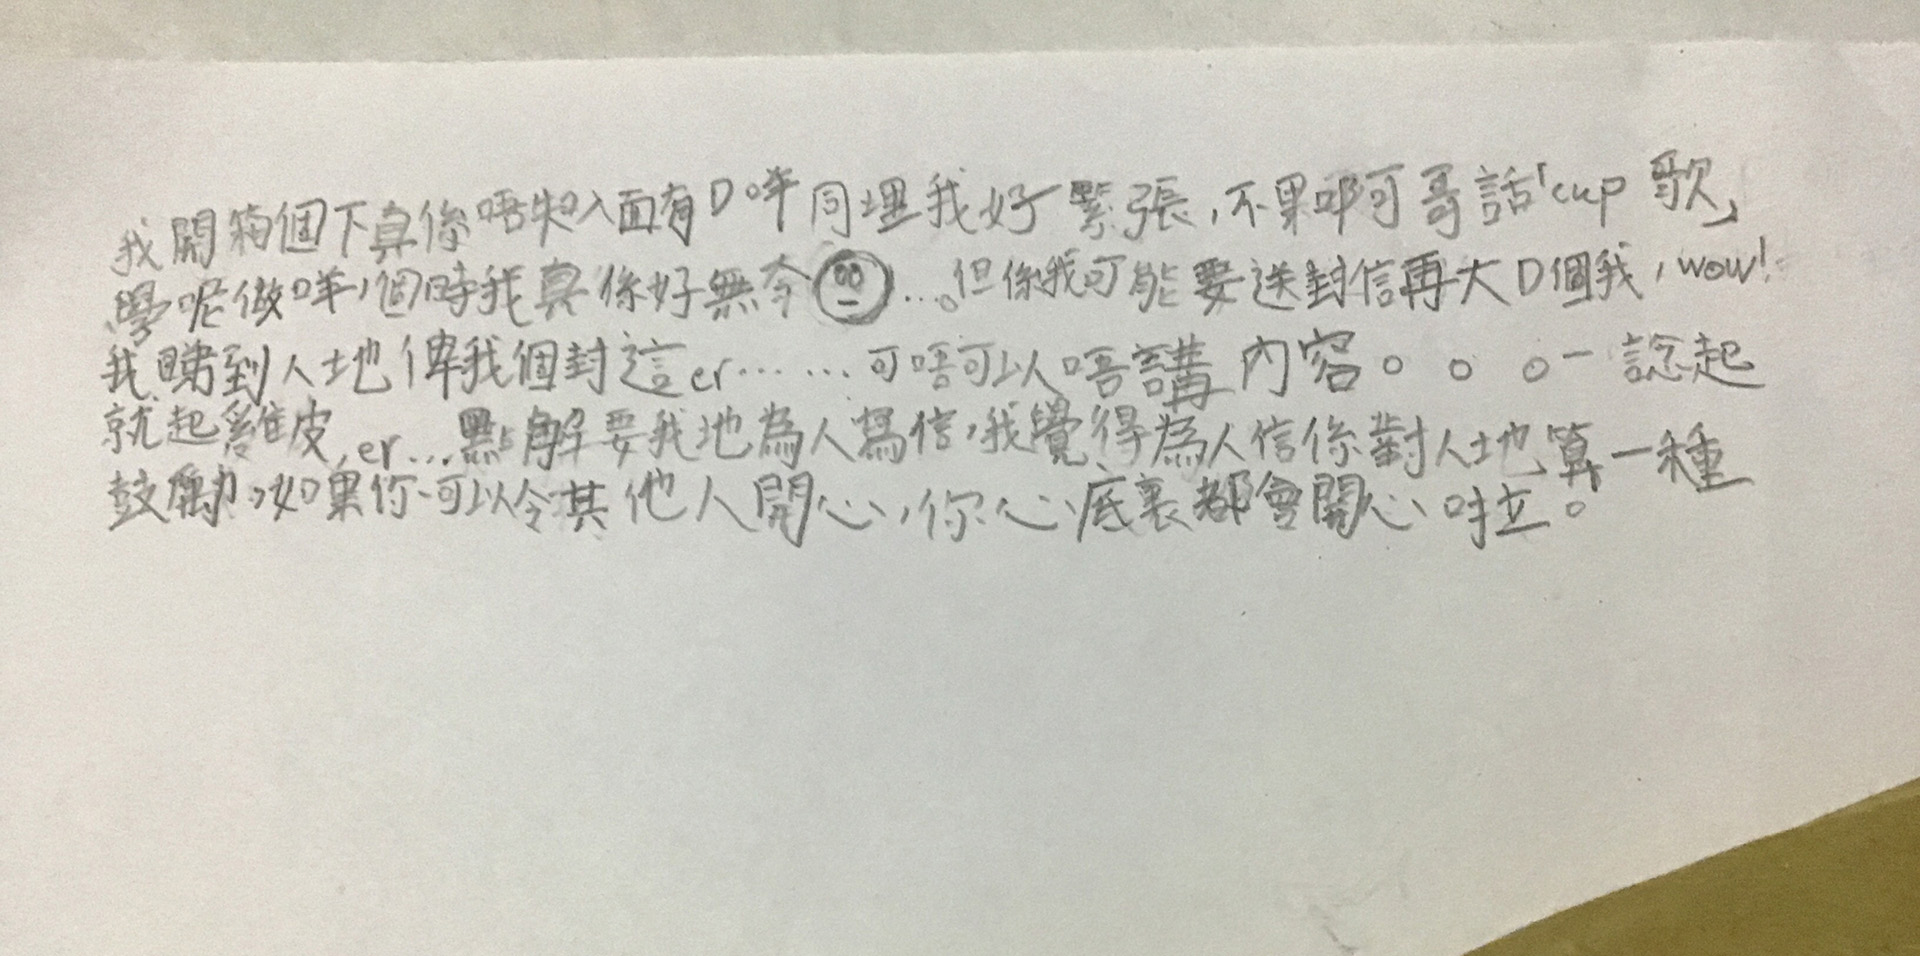 我開箱個下真係唔知入面有D咩同埋我好緊張,不果叩可哥話「cup 歌」
學呢做咩,個時我真係好無令...。但係我可能要送封信再大D個我,wow!
我睇到人地俾我個封這er……可唔可以唔講內容。。。一諗起
就起雞皮,er...點解要我地為人寫信,我覺得為人信係對人地算一種
鼓勵。如果你可以令其他人開心,你心底裏都會開心咕。